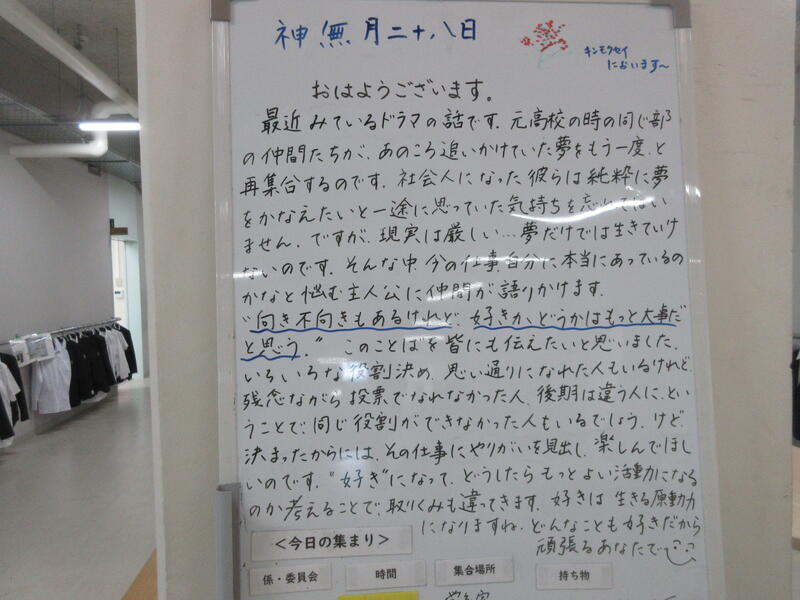 神無月二十八日
キンモクセイ
においます〜
おはようございます。
最近みているドラマの話です。元高校の時の同じ部
の仲間たちが、あのころ追いかけていた夢をもう一度、と
再集合するのです。社会人になった彼らは純粋に夢
をかなえたいと一途に思っていた気持ちを忘れてはい
ません。ですが、現実は厳しい…夢だけでは生きていけ
ないのです。そんな中、今の仕事、自分に本当にあっているの
かなと悩む主人公に仲間が語りかけます。
"向き不向きもあるけれど、好きか、どうかはもっと大事だ
と思う。" このことばを皆にも伝えたいと思いました。
いろいろな役割決め、思い通りになれた人もいるけれど、
残念ながら投票でなれなかった人、後期は違う人に、とい
うことで、同じ役割ができなかった人もいるでしょう。けど、
決まったからには、その仕事にやりがいを見出し、楽しんでほし
いのです。"好き"になって、どうしたらもっとよい活動になる
のか考えることで、取りくみも違ってきます。好きは生きる原動力
になりますね。どんなことも好きだから
頑張るあなたで
＜今日の集まり＞
係・委員会 時間 集合場所 持ち物